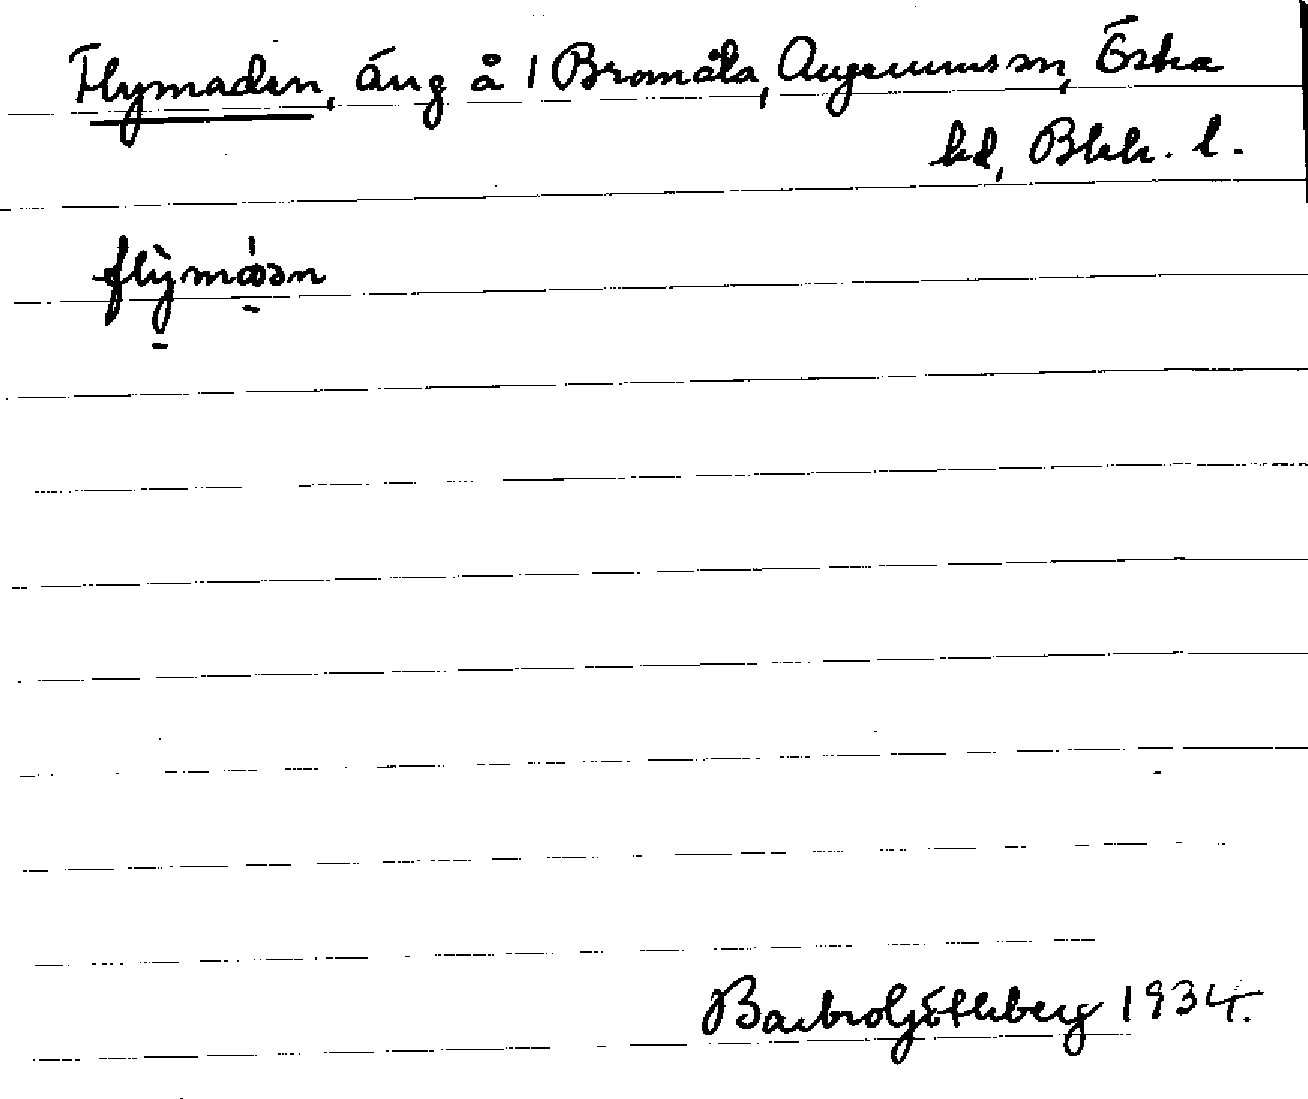 Flymaden, äng å 1 Bromåla, Augerums sn, Östra
hd, Blek. l.
flỳmáən
Barbro Götheberg 1934.